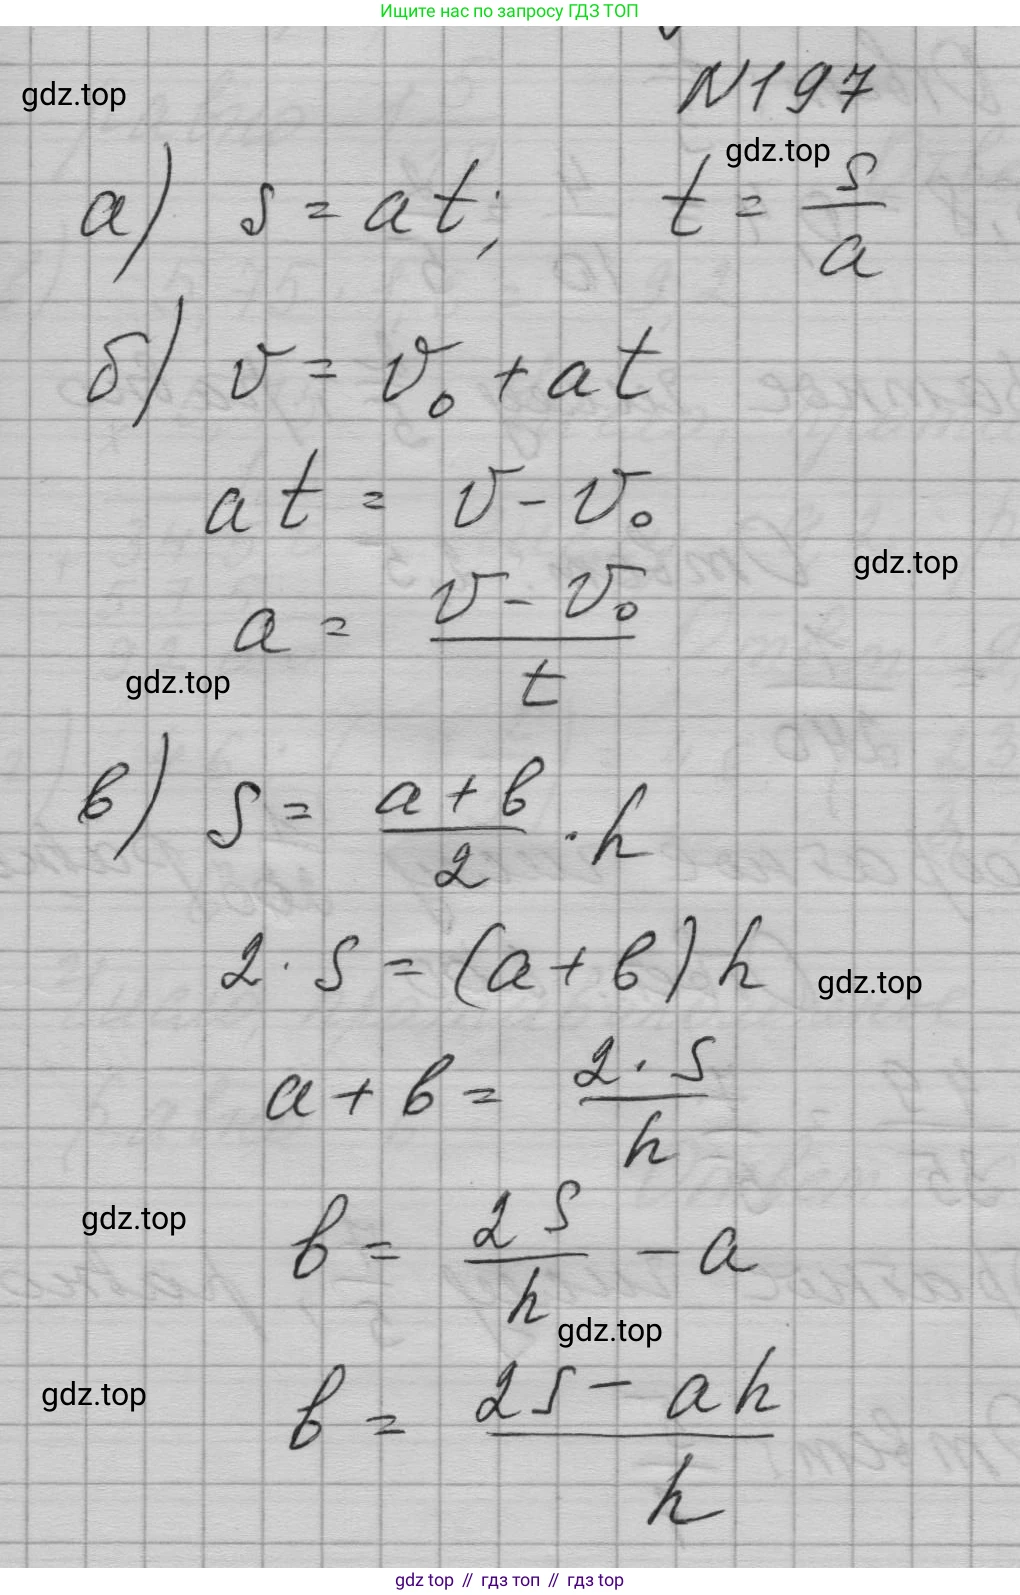 Ищите нас по запросу ГДЗ ТОП
N197
gdz.top
gdz.top
а) s = at; t = s/a
б) v = v₀ + at
at = v - v₀
gdz.top
a = (v - v₀)/t
gdz.top
в) S = (a + b)/2 · h
2 · S = (a + b) h
gdz.top
a + b = (2 · S)/h
gdz.top
b = 2S/h - a
gdz.top
gdz.top
b = (2S - ah)/h
gdz.top // гдз топ // гдз top